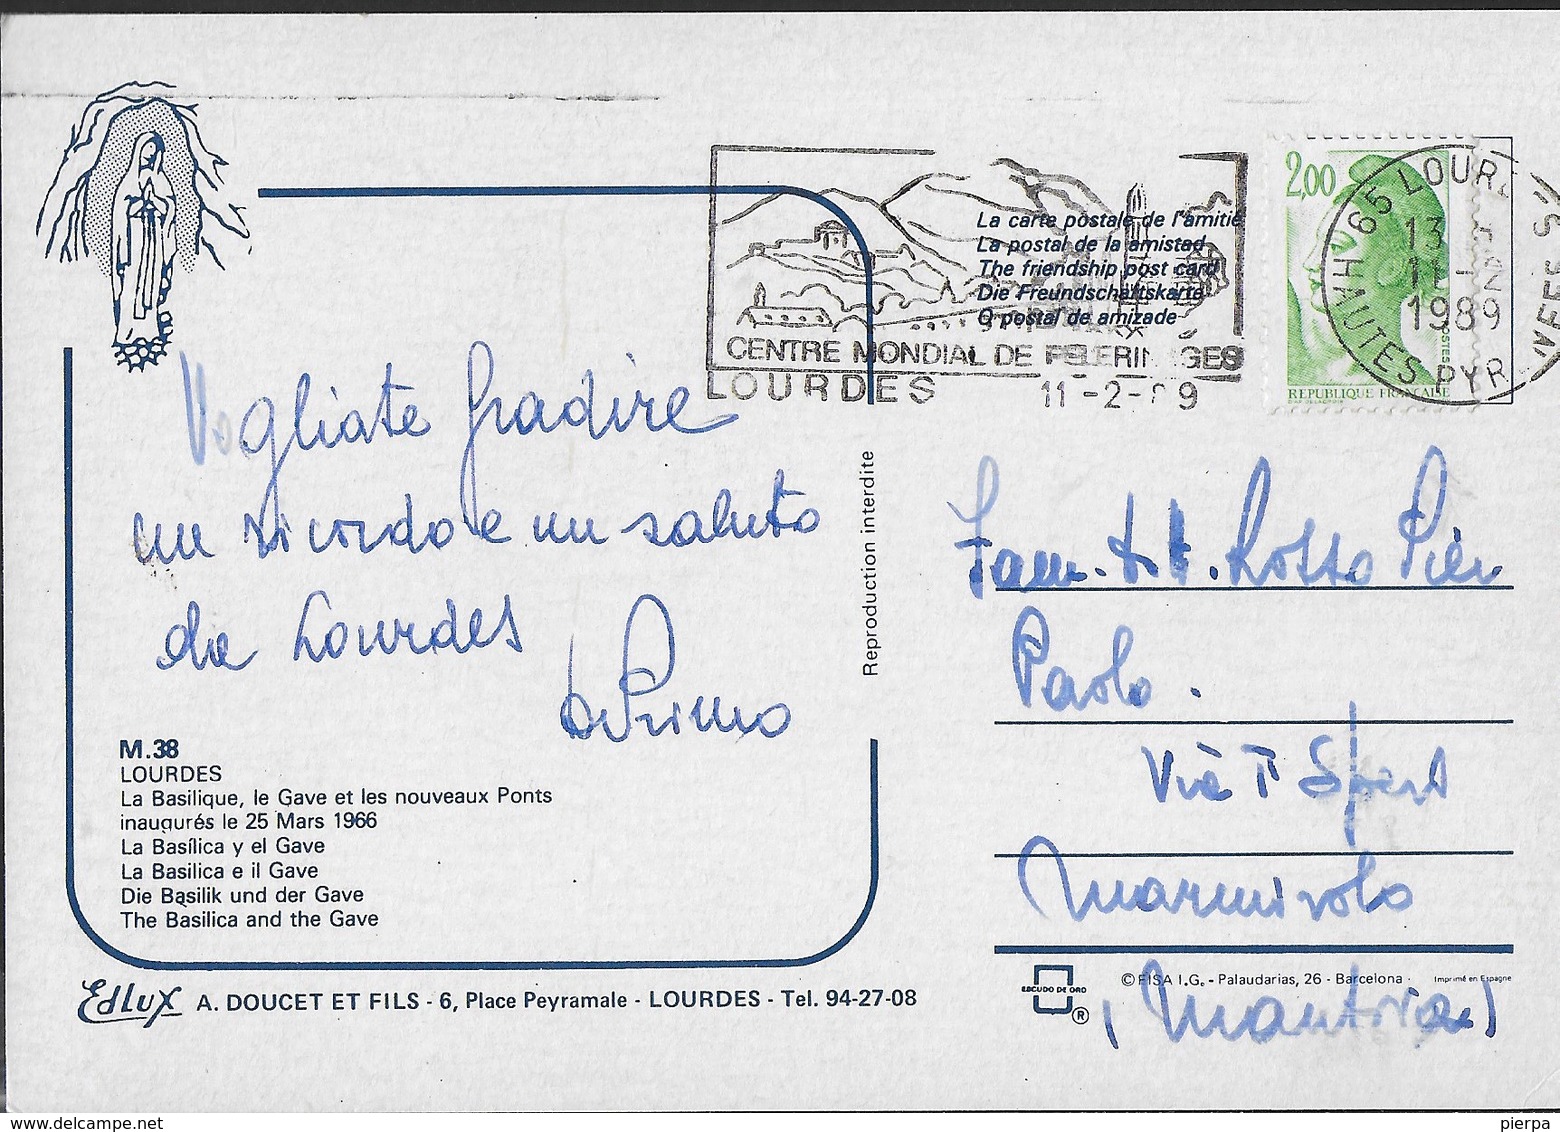 Vogliate gradire
un ricordo e un saluto
da Lourdes
Primo
M.38
LOURDES
La Basilique, le Gave et les nouveaux Ponts
inaugurés le 25 Mars 1966
La Basílica y el Gave
La Basilica e il Gave
Die Basilik und der Gave
The Basilica and the Gave
Edlux A. DOUCET ET FILS - 6, Place Peyramale - LOURDES - Tel. 94-27-08
Reproduction interdite
La carte postale de l'amitié
La postal de la amistad
The friendship post card
Die Freundschaftskarte
O postal de amizade
CENTRE MONDIAL DE PELERINAGES
LOURDES 11-2-89
2,00
POSTES
REPUBLIQUE FRANÇAISE
65 LOURDES
13
11-2
1989
HAUTES PYR
Fam. Rosso Pier
Paolo.
Via
Marmirolo
(Mantova)
ESCUDO DE ORO
®
© FISA I.G. - Palaudarias, 26 - Barcelona - Imprimé en Espagne
www.delcampe.net
pierpa